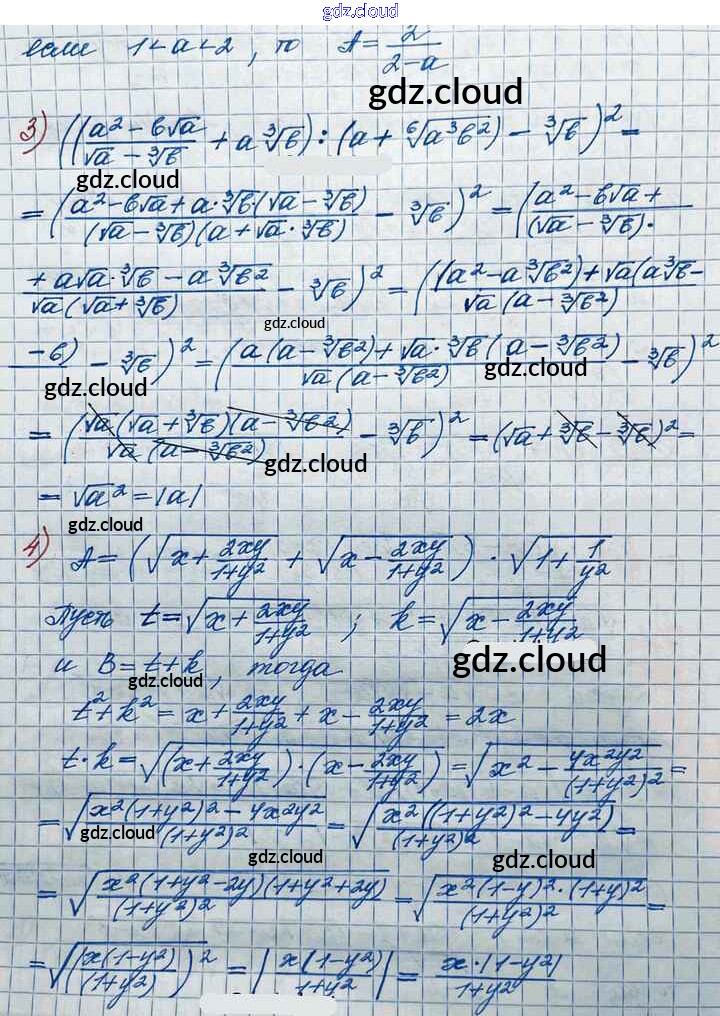 gdz.cloud
если 1<a<2, то A = 2/(2-a)
gdz.cloud
3) (((a² - b√a)/(√a - ∛b) + a∛b) : (a + ⁶√(a³b²)) - ∛b)² =
gdz.cloud
= ((a² - b√a + a·∛b(√a - ∛b))/((√a - ∛b)(a + √a·∛b)) - ∛b)² = ((a² - b√a +)/((√a - ∛b)·
(+ a√a·∛b - a∛b²)/(√a(√a + ∛b)) - ∛b)² = (((a² - a∛b²) + √a(a∛b -)/(√a(a - ∛b²))
gdz.cloud
- b) - ∛b)² = ((a(a - ∛b²) + √a·∛b(a - ∛b²))/(√a(a - ∛b²)) - ∛b)²
gdz.cloud gdz.cloud
= ((√a(√a + ∛b)(a - ∛b²))/(√a(a - ∛b²)) - ∛b)² = (√a + ∛b - ∛b)² =
gdz.cloud
= √a² = |a|
gdz.cloud
4) A = (√(x + 2xy/(1+y²)) + √(x - 2xy/(1+y²))) · √(1 + 1/y²)
Пусть t = √(x + 2xy/(1+y²)) ; k = √(x - 2xy/(1+y²))
и B = t + k, тогда
gdz.cloud gdz.cloud
t² + k² = x + 2xy/(1+y²) + x - 2xy/(1+y²) = 2x
t·k = √((x + 2xy/(1+y²))·(x - 2xy/(1+y²))) = √(x² - 4x²y²/(1+y²)²) =
= √((x²(1+y²)² - 4x²y²)/(1+y²)²) = √((x²((1+y²)² - 4y²))/(1+y²)²) =
gdz.cloud gdz.cloud
= √((x²(1+y²-2y)(1+y²+2y))/(1+y²)²) = √((x²(1-y)²·(1+y)²)/(1+y²)²) =
gdz.cloud gdz.cloud
= √((x(1-y²)/(1+y²))²) = |x(1-y²)/(1+y²)| = x·|1-y²|/(1+y²)